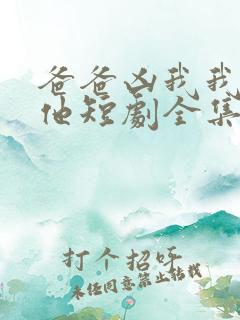 爸爸凶我我
他短劇全集
打个招呼
未经同意禁止转载